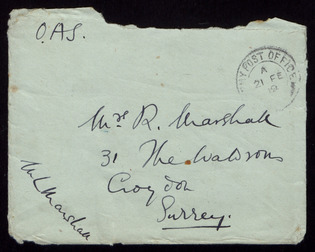 O.A.S.
ARMY POST OFFICE
A
21 FE
Mrs R. Marshall
31 The Waldrons
Croydon
Surrey.
Marshall